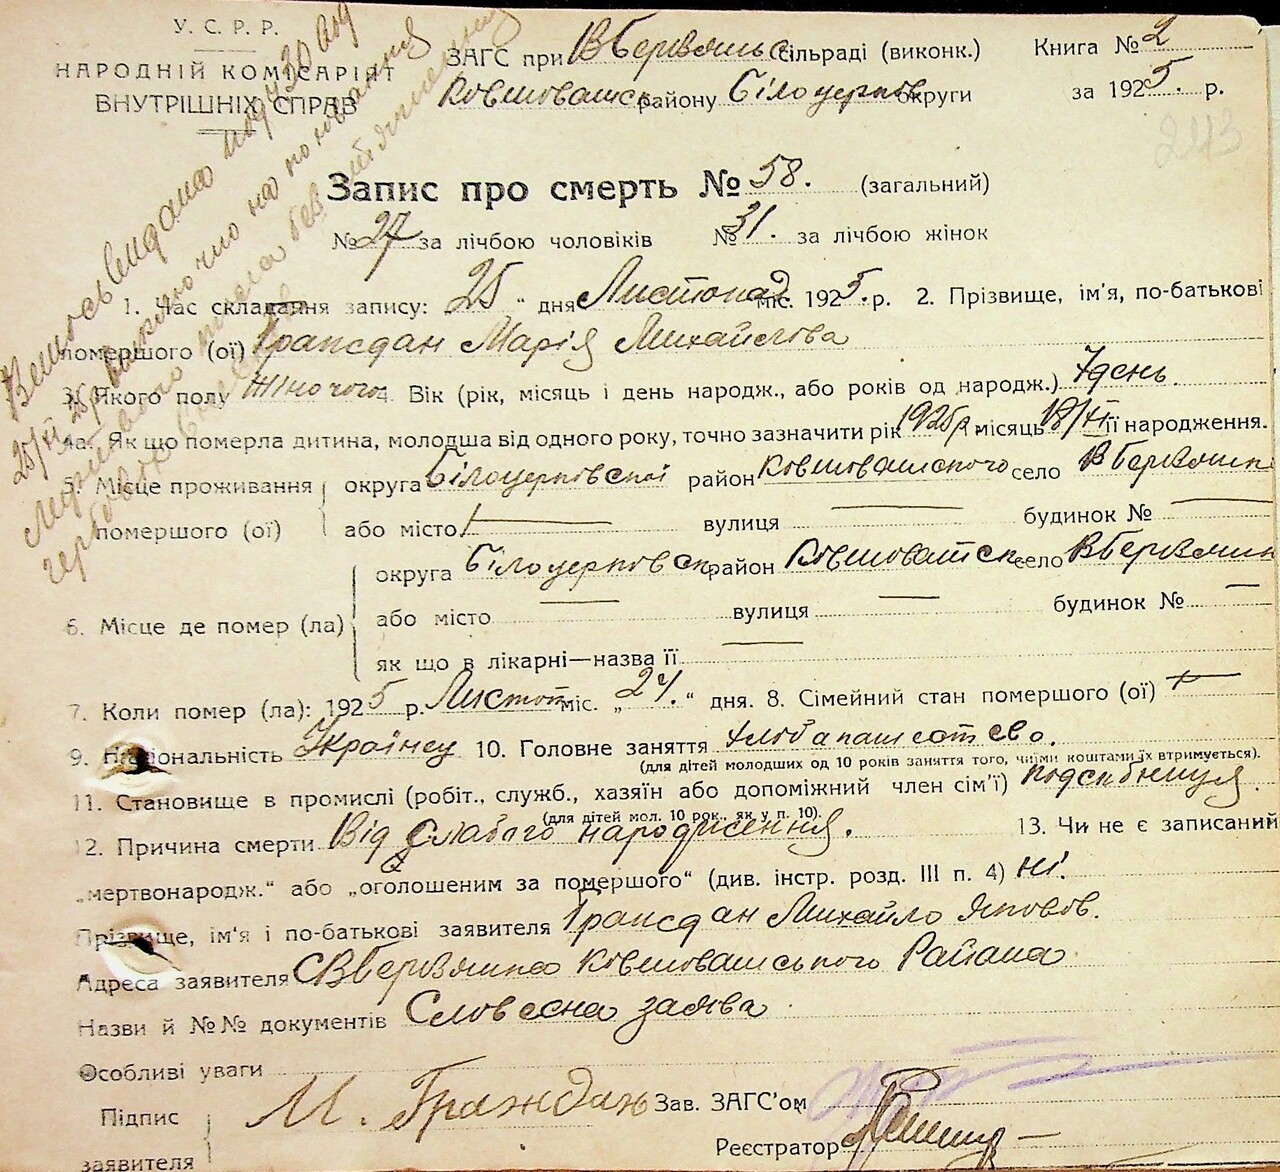 У. С. Р. Р.
НАРОДНІЙ КОМІСАРІЯТ
ВНУТРІШНІХ СПРАВ
ЗАГС при В Березянс сільраді (виконк.)
Ковшоватськ району Білоцерков округи
Книга № 2
за 1925. р.
243
Запис про смерть № 58. (загальний)
№ 27 за лічбою чоловіків № 31. за лічбою жінок
1. Час складання запису: 25 " дня Листопад міс. 1925. р. 2. Прізвище, ім'я, по-батькові
помершого (ої) Граждан Марія Михайлова
3. Якого полу Жіночого 4. Вік (рік, місяць і день народж., або років од народж.) 7 день
4а. Як що померла дитина, молодша від одного року, точно зазначити рік 1925р. місяць 18/XI її народження.
5. Місце проживання помершого (ої) округа Білоцерковської район Ковшоватського село В Березянк
або місто — вулиця — будинок № —
6. Місце де помер (ла) округа Білоцерковськ район Ковшоватськ село В Березянк
або місто — вулиця — будинок № —
як що в лікарні—назва її —
7. Коли помер (ла): 1925 р. Листоп міс. „24." дня. 8. Сімейний стан помершого (ої) —
9. Національність Українец 10. Головне заняття хлібапашество.
(для дітей молодших од 10 років заняття того, чиїми коштами їх втримується).
11. Становище в промислі (робіт., служб., хазяїн або допоміжний член сім'ї)
(для дітей мол. 10 рок., як у п. 10).
12. Причина смерти Від слабого народження. 13. Чи не є записаний
„мертвонародж." або „оголошеним за помершого" (див. інстр. розд. III п. 4) ні.
Прізвище, ім'я і по-батькові заявителя Граждан Михайло Яковов.
Адреса заявителя с В Березянка Ковшоватського Района
Назви й №№ документів Словесна заява
Особливі уваги
Підпис заявителя М. Граждан
Зав. ЗАГС'ом
Реєстратор